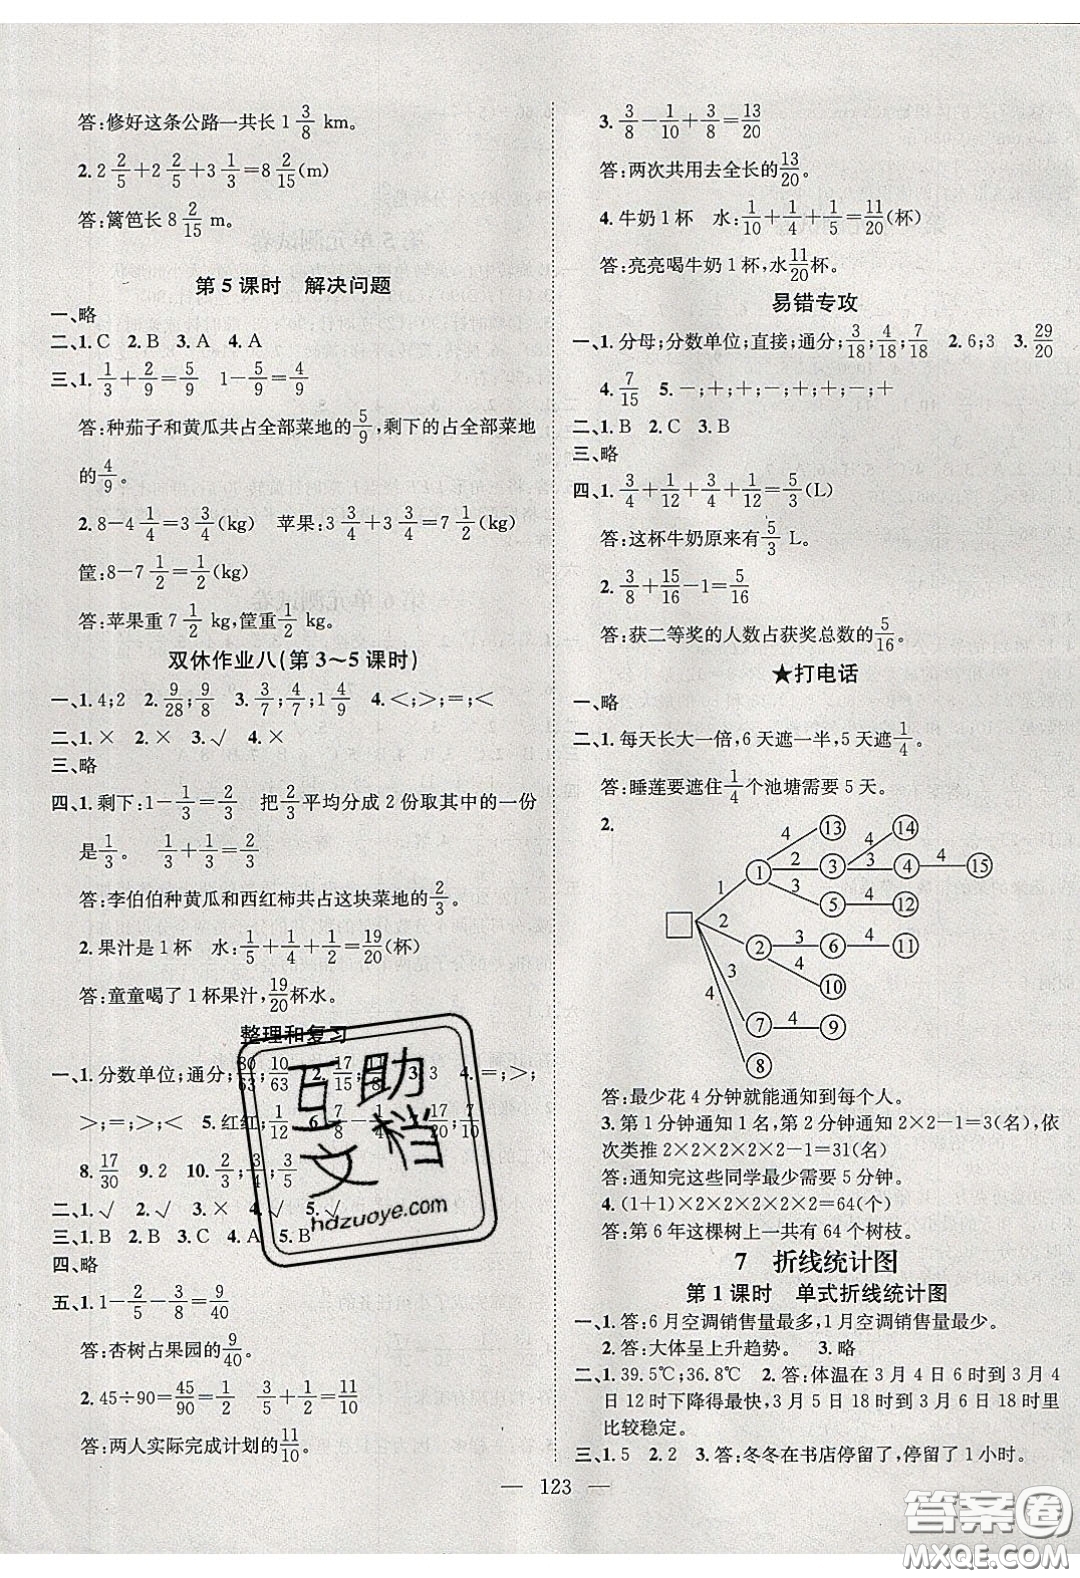 答:修好这条公路一共长 1 3/8 km。
2. 2 2/5+2 2/5+3 1/3=8 2/15(m)
答:篱笆长 8 2/15 m。
第 5 课时 解决问题
一、略
二、1. C 2. B 3. A 4. A
三、1. 1/3+2/9=5/9 1-5/9=4/9
答:种茄子和黄瓜共占全部菜地的5/9,剩下的占全部菜地
的4/9。
2. 8-4 1/4=3 3/4(kg) 苹果:3 3/4+3 3/4=7 1/2(kg)
筐:8-7 1/2=1/2(kg)
答:苹果重 7 1/2 kg,筐重1/2 kg。
双休作业八(第 3~5 课时)
一、1. 4;2 2. 9/28;9/8 3. 3/7;4/7;1 4/9 4. <;>;=;<
二、1. × 2. × 3. √ 4. ×
三、略
四、1. 剩下:1-1/3=2/3 把2/3平均分成 2 份取其中的一份
是1/3。 1/3+1/3=2/3
答:李伯伯种黄瓜和西红柿共占这块菜地的2/3。
2. 果汁是 1 杯 水:1/5+1/4+1/2=19/20(杯)
答:童童喝了 1 杯果汁,19/20杯水。
整理和复习
一、1. 分数单位;通分;80/63;10/63 2. 17/15;11/8 3. 3 4. =;>;
>;=;>;< 5. 红红;1/12 6. 7/8-1/4 17/20;7/10
8. 17/30 9. 2 10. 2/3;3/4;3/5
二、1. √ 2. × 3. × 4. √ 5. √
三、1. B 2. B 3. C 4. A 5. B
四、略
五、1. 1-2/5-3/8=9/40
答:杏树占果园的9/40。
2. 45÷90=45/90=1/2 3/5+1/2=11/10
答:两人实际完成计划的11/10。
3. 3/8-1/10+3/8=13/20
答:两次共用去全长的13/20。
4. 牛奶 1 杯 水:1/10+1/4+1/5=11/20(杯)
答:亮亮喝牛奶 1 杯,水11/20杯。
易错专攻
一、1. 分母;分数单位;直接;通分;3/18;4/18;7/18 2. 6;3 3. 29/20
4. 7/15 5. -;+;+;-;+;-;-;+
二、1. B 2. C 3. B
三、略
四、1. 3/4+1/12+3/4+1/12=5/3(L)
答:这杯牛奶原来有5/3 L。
2. 3/8+15/16-1=5/16
答:获二等奖的人数占获奖总数的5/16。
★打电话
一、略
二、1. 每天长大一倍,6 天遮一半,5 天遮1/4。
答:睡莲要遮住1/4个池塘需要 5 天。
2.
4 ⑬ 4 ⑭
1 ① 2 ③ 3 ④ 4 ⑮
3 ⑤ 4 ⑫
2 ② 3 ⑥ 4 ⑪
4 ⑩
3 ⑦ 4 ⑨
4 ⑧
答:最少花 4 分钟就能通知到每个人。
3. 第 1 分钟通知 1 名,第 2 分钟通知 2×2-1=3(名),依
次类推 2×2×2×2×2-1=31(名)
答:通知完这些同学最少需要 5 分钟。
4. (1+1)×2×2×2×2×2=64(个)
答:第 6 年这棵树上一共有 64 个树枝。
7 折线统计图
第 1 课时 单式折线统计图
一、1. 答:6 月空调销售量最多,1 月空调销售量最少。
2. 答:大体呈上升趋势。 3. 略
二、1. 39.5℃;36.8℃ 2. 答:体温在 3 月 4 日 6 时到 3 月 4
日 12 时下降得最快,3 月 5 日 18 时到 3 月 6 日 18 时里
比较稳定。
三、1. 5 2. 2 3. 答:冬冬在书店停留了,停留了 1 小时。
— 123 —
互助文档
hdzuoye.com
答案圈
MXQE.COM